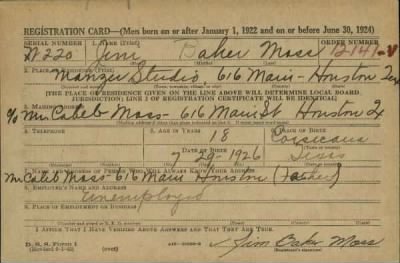 REGISTRATION CARD—(Men born on or after January 1, 1922 and on or before June 30, 1924)
SERIAL NUMBER 1. NAME (Print) ORDER NUMBER
W220 Jim Baker Moss 12141-V
2. PLACE OF RESIDENCE
Studio, 616 Main - Houston Tex
(THE PLACE OF RESIDENCE GIVEN ON THE LINE ABOVE WILL DETERMINE LOCAL BOARD
JURISDICTION; LINE 2 OF REGISTRATION CERTIFICATE WILL BE IDENTICAL)
3. MAILING ADDRESS
% Mr. Caleb Moss - 616 Main St Houston Tx
4. TELEPHONE 5. AGE IN YEARS 6. PLACE OF BIRTH
18 Corsicana
DATE OF BIRTH
7 29 - 1926 Texas
7. NAME AND ADDRESS OF PERSON WHO WILL ALWAYS KNOW YOUR ADDRESS
Mr. Caleb Moss - 616 Main Houston (Father)
8. EMPLOYER'S NAME AND ADDRESS
Unemployed
9. PLACE OF EMPLOYMENT OR BUSINESS
I AFFIRM THAT I HAVE VERIFIED ABOVE ANSWERS AND THAT THEY ARE TRUE.
D. S. S. Form 1 (over)
Jim Baker Moss